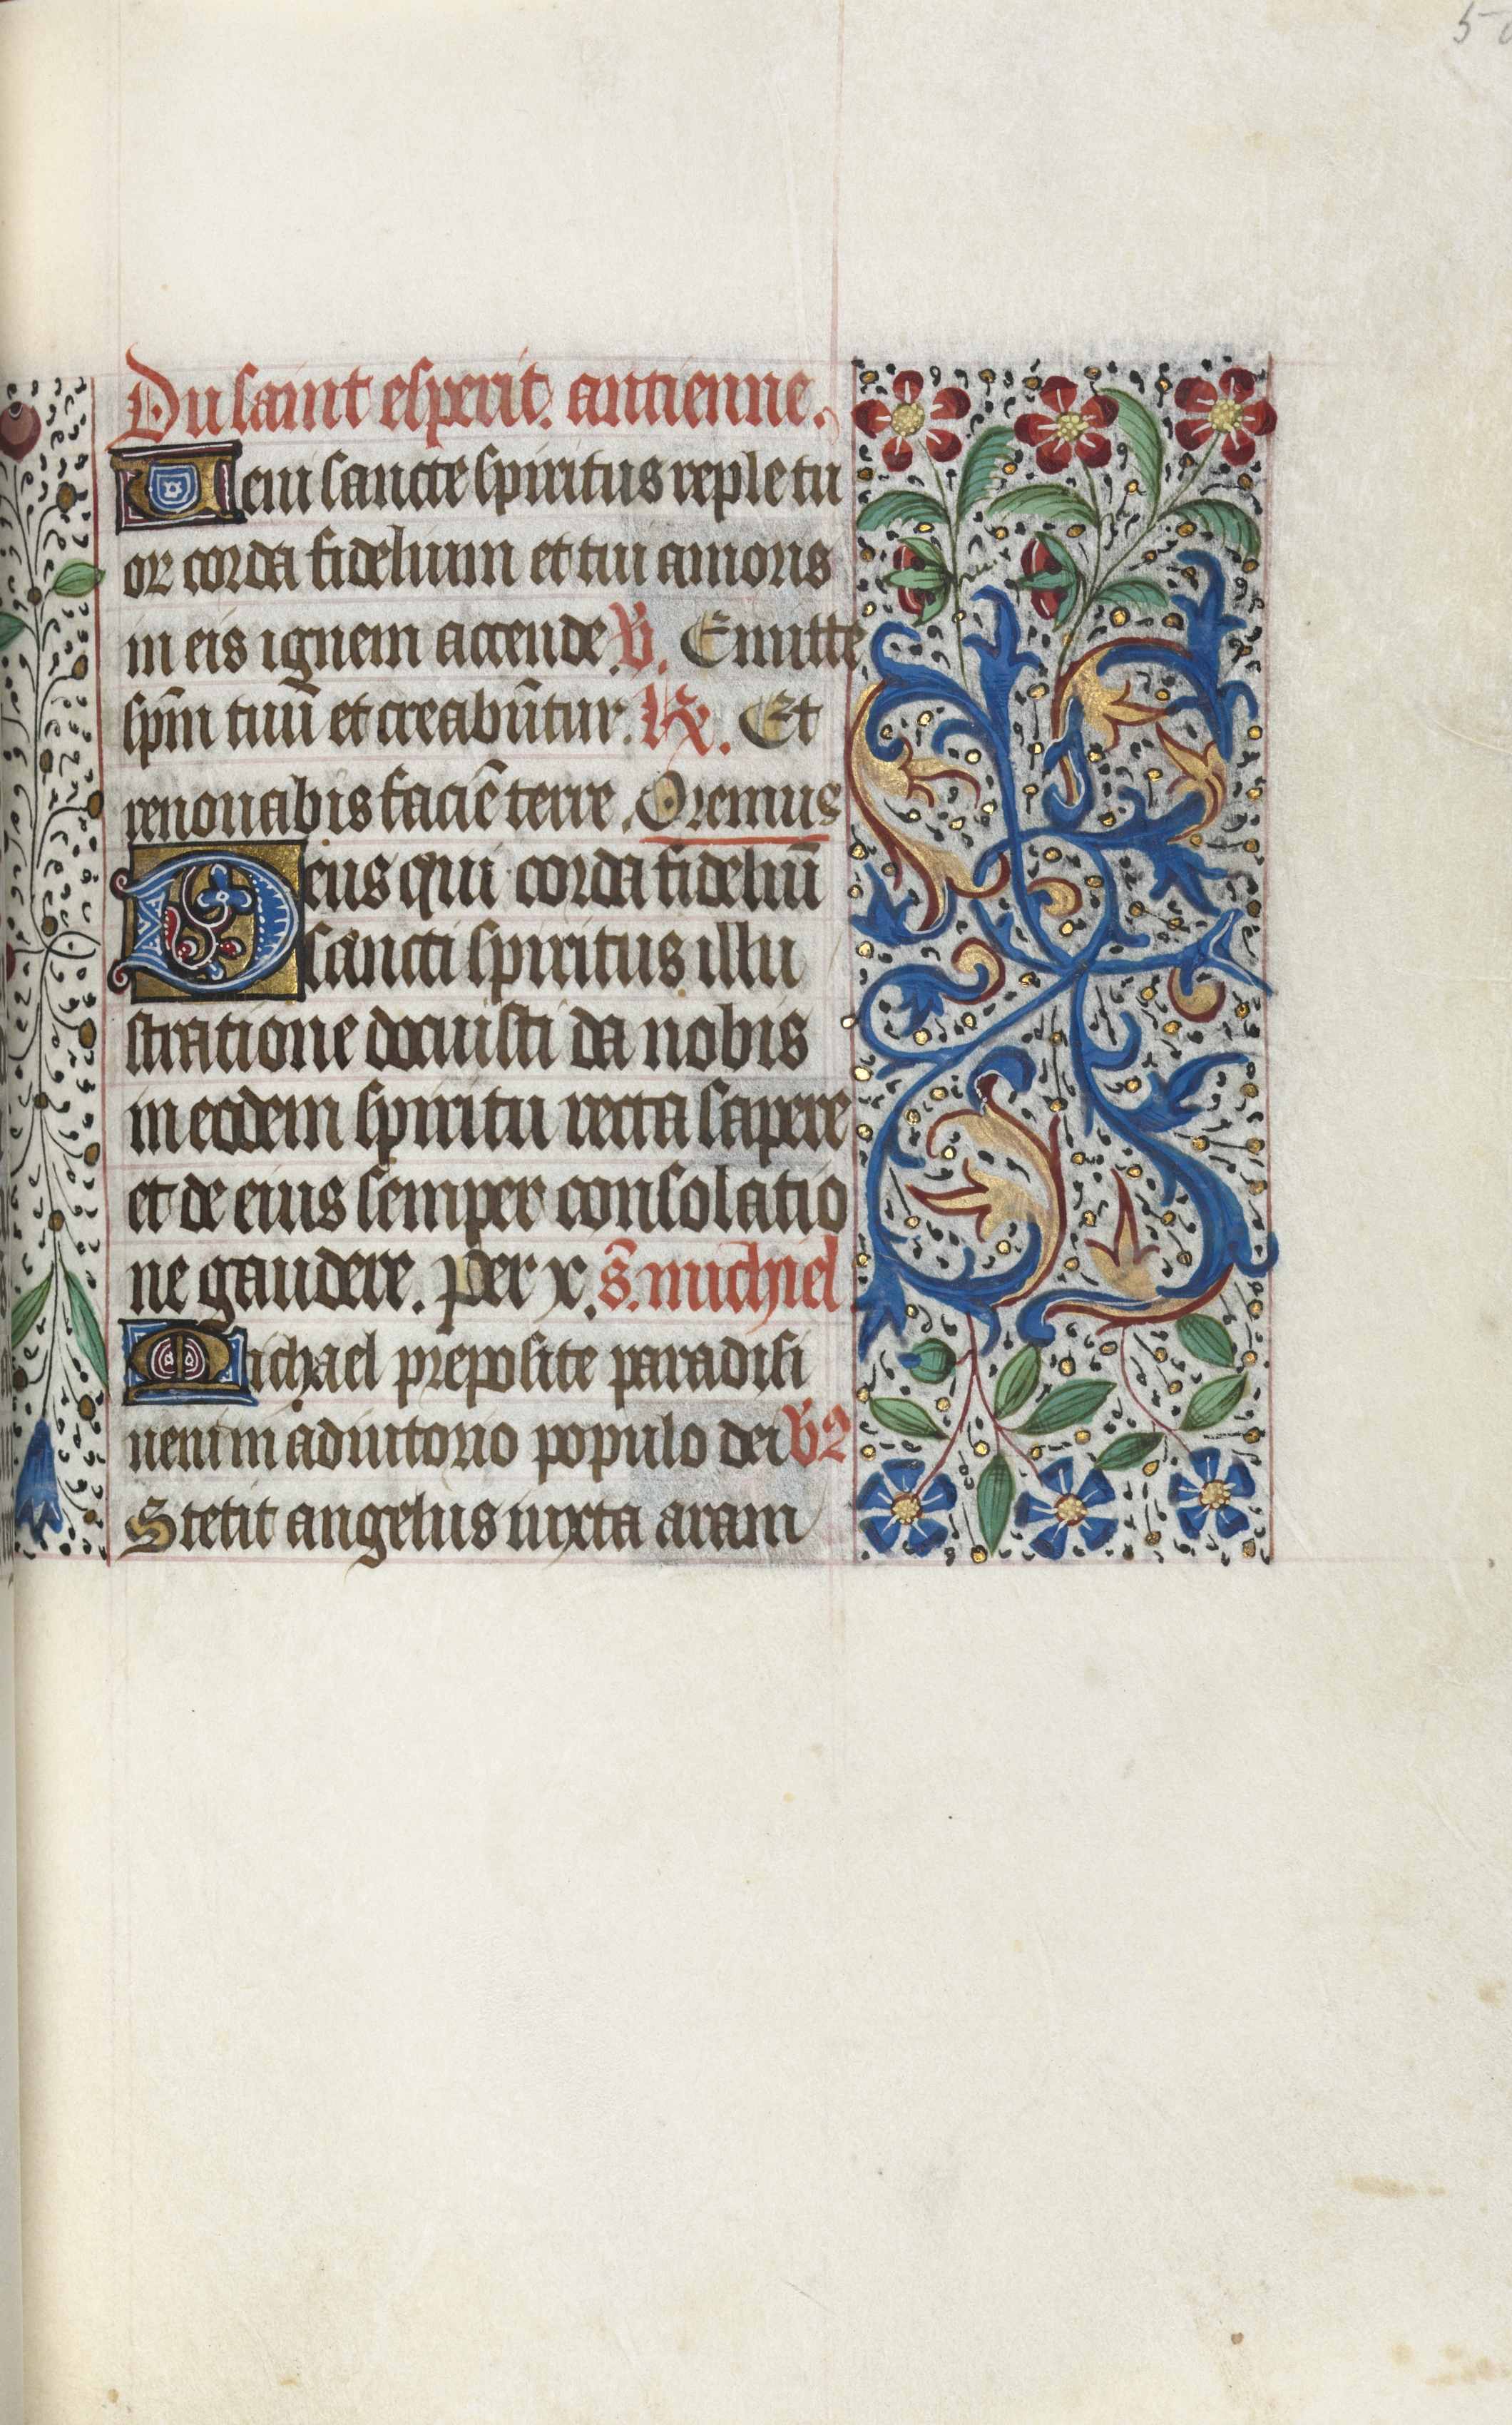 5
Du saint esperit. antienne.
Ueni sancte spiritus reple tu
or corda fidelium et tui amoris
in eis ignem accende. V. Emitte
spm̄ tuū et creabūtur. R. Et
renouabis faciē terre. Oremus
Deus qui corda fideliū
sancti spiritus illu
stratione docuisti da nobis
in eodem spiritu recta sapere
et de eius semper consolatio
ne gaudere. per x. s. michiel
Michael preposite paradisi
ueni in adiutorio populo dei V2
Stetit angelus iuxta aram